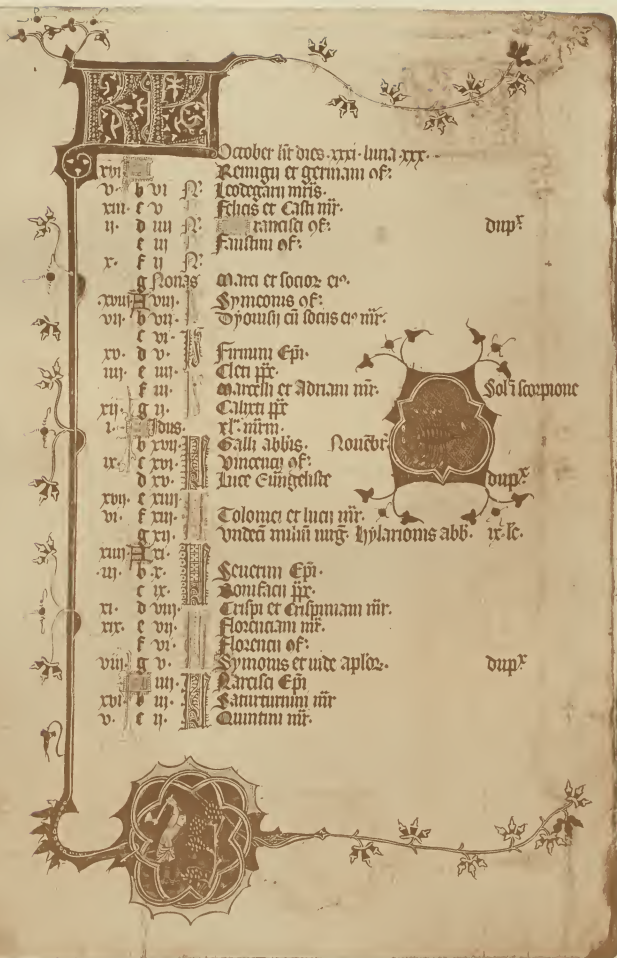 KL
October hr dies · xxxi · luna · xxx ·
xvi Remigii et germani ꝯf:
v · b vi N Leodegarii mris ·
xiii · c v Felicis et Casti mr ·
ii · d iiii N rancisci ꝯf: dupx
e iii Faustini ꝯf:
x · f ii N
g Nonas Marci et socior eiꝰ ·
xviii A viii · Symeonis ꝯf:
vii · b vii · Dyonisii cū sociis eiꝰ mr ·
c vi ·
xv · d v · Firmini Epi ·
iiii · e iiii · Cleti pp
f iii · Marcelli et Adriani mr · Sol ī scorpione
xii · g ii · Calixti pp
i · Idus · xl · mrm ·
b xvii · Galli abbis · Nouebr
ix · c xvi · Vincencii ꝯf:
d xv · Luce Euangeliste dupx
xvii · e xiiii ·
vi · f xiii · Tolomei et lucii mr ·
g xii · Undeci milm uirg · hylarionis abb · ix · lc ·
xiiii A xi ·
iii · b · x · Seuerini Epi ·
c ix · Bonifacii pp ·
xi · d viii · Crispi et Crispiniani mr ·
xix · e vii · Florenciani mr ·
f vi · Florencii ꝯf:
viii · g v · Symonis et iude aplor · dupx
iiii · Narcisci Epi
xvi · b iii · Saturturnini mr
v · c ii · Quintini mr ·